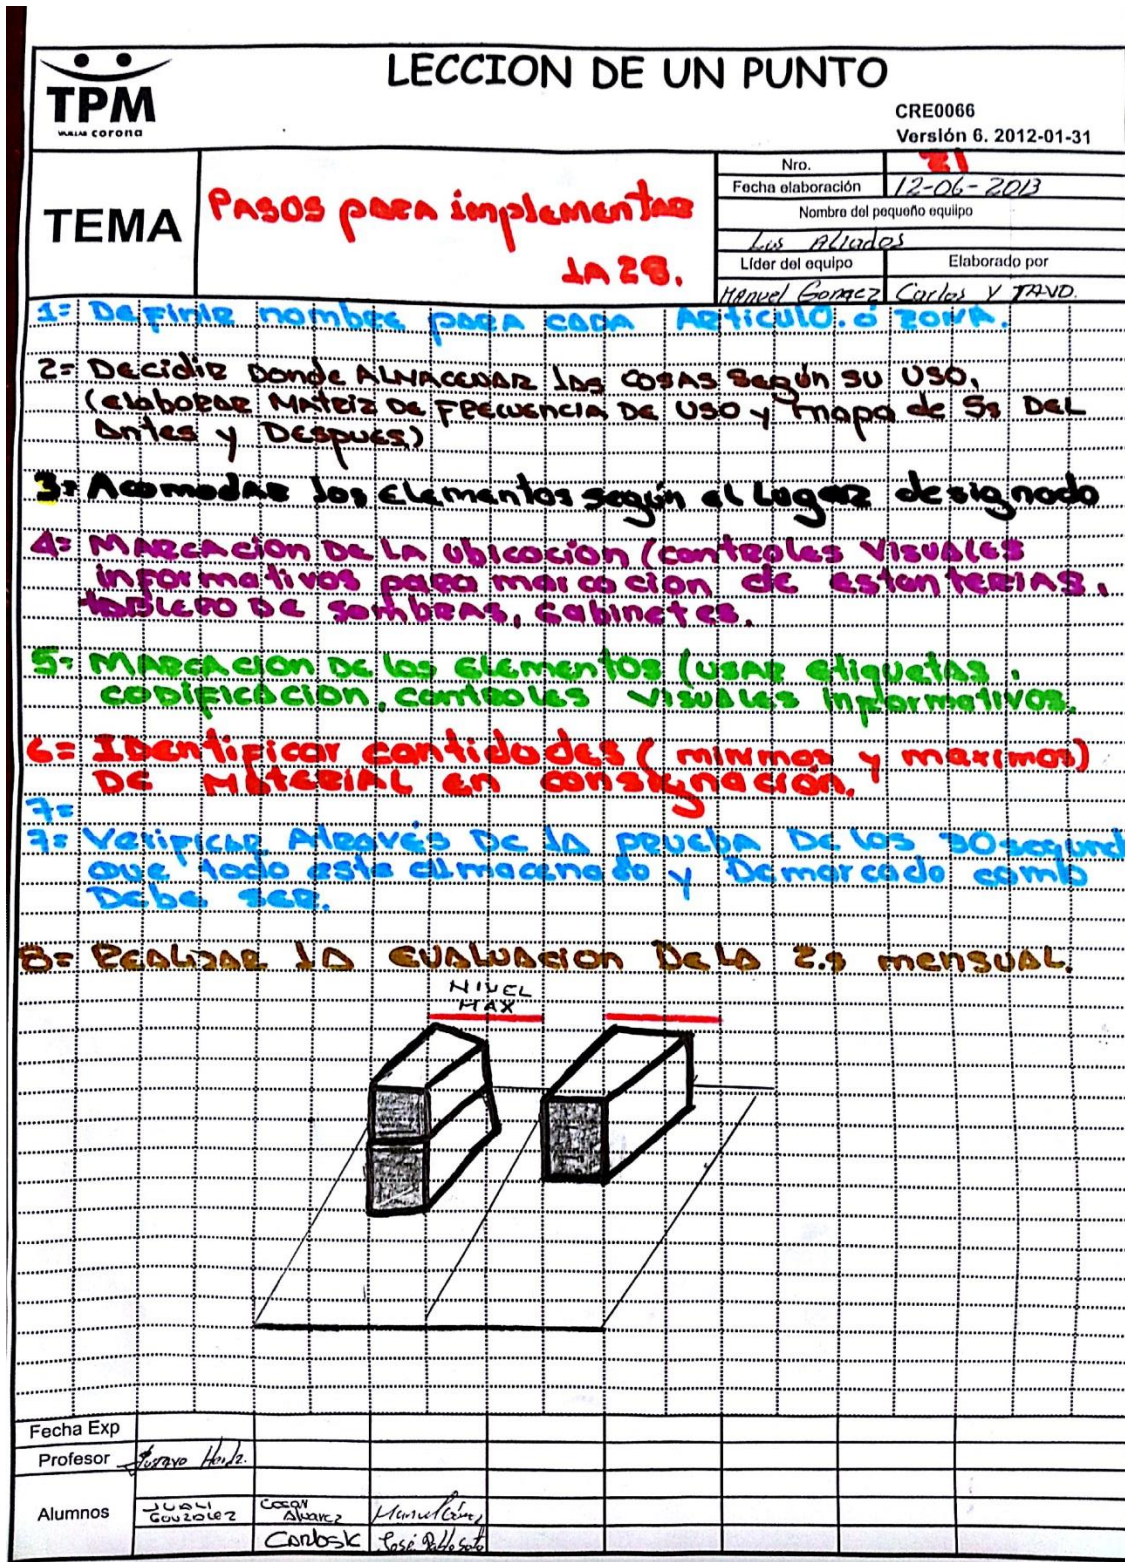 LECCION DE UN PUNTO
TPM
VAJILLAS corona
CRE0066
Versión 6. 2012-01-31
TEMA
PASOS PARA implementar
LA 2S.
Nro. 21
Fecha elaboración 12-06-2013
Nombre del pequeño equiipo
Los Aliados
Líder del equipo
Elaborado por
Manuel Gomez
Carlos Y
1= Definir nombre para cada Articulo. ó zona.
2= Decidir Donde ALMACENAR las cosas según su uso,
(elaborar Matriz de frecuencia de uso y mapa de 5s DEL
Antes y Despues)
3= Acomodar los elementos según el lugar designado
4= Marcacion de la ubicocion (controles visuales
informativos para marcacion de estanterias,
tablero de sombras, gabinetes.
5= Marcacion de los elementos (usar etiquetas,
codificacion, controles visuales informativos.
6= Identificar cantidades (minimos y maximos)
De Material en consignación.
7=
7= Verificar Através De la prueba De los 30 segund
que todo este almacenado y Demarcado como
Debe ser.
8= Realizar la evaluacion De la 2.s mensual.
NIVEL
MAX
Fecha Exp
Profesor
Alumnos
Gonzolez
Alvarez